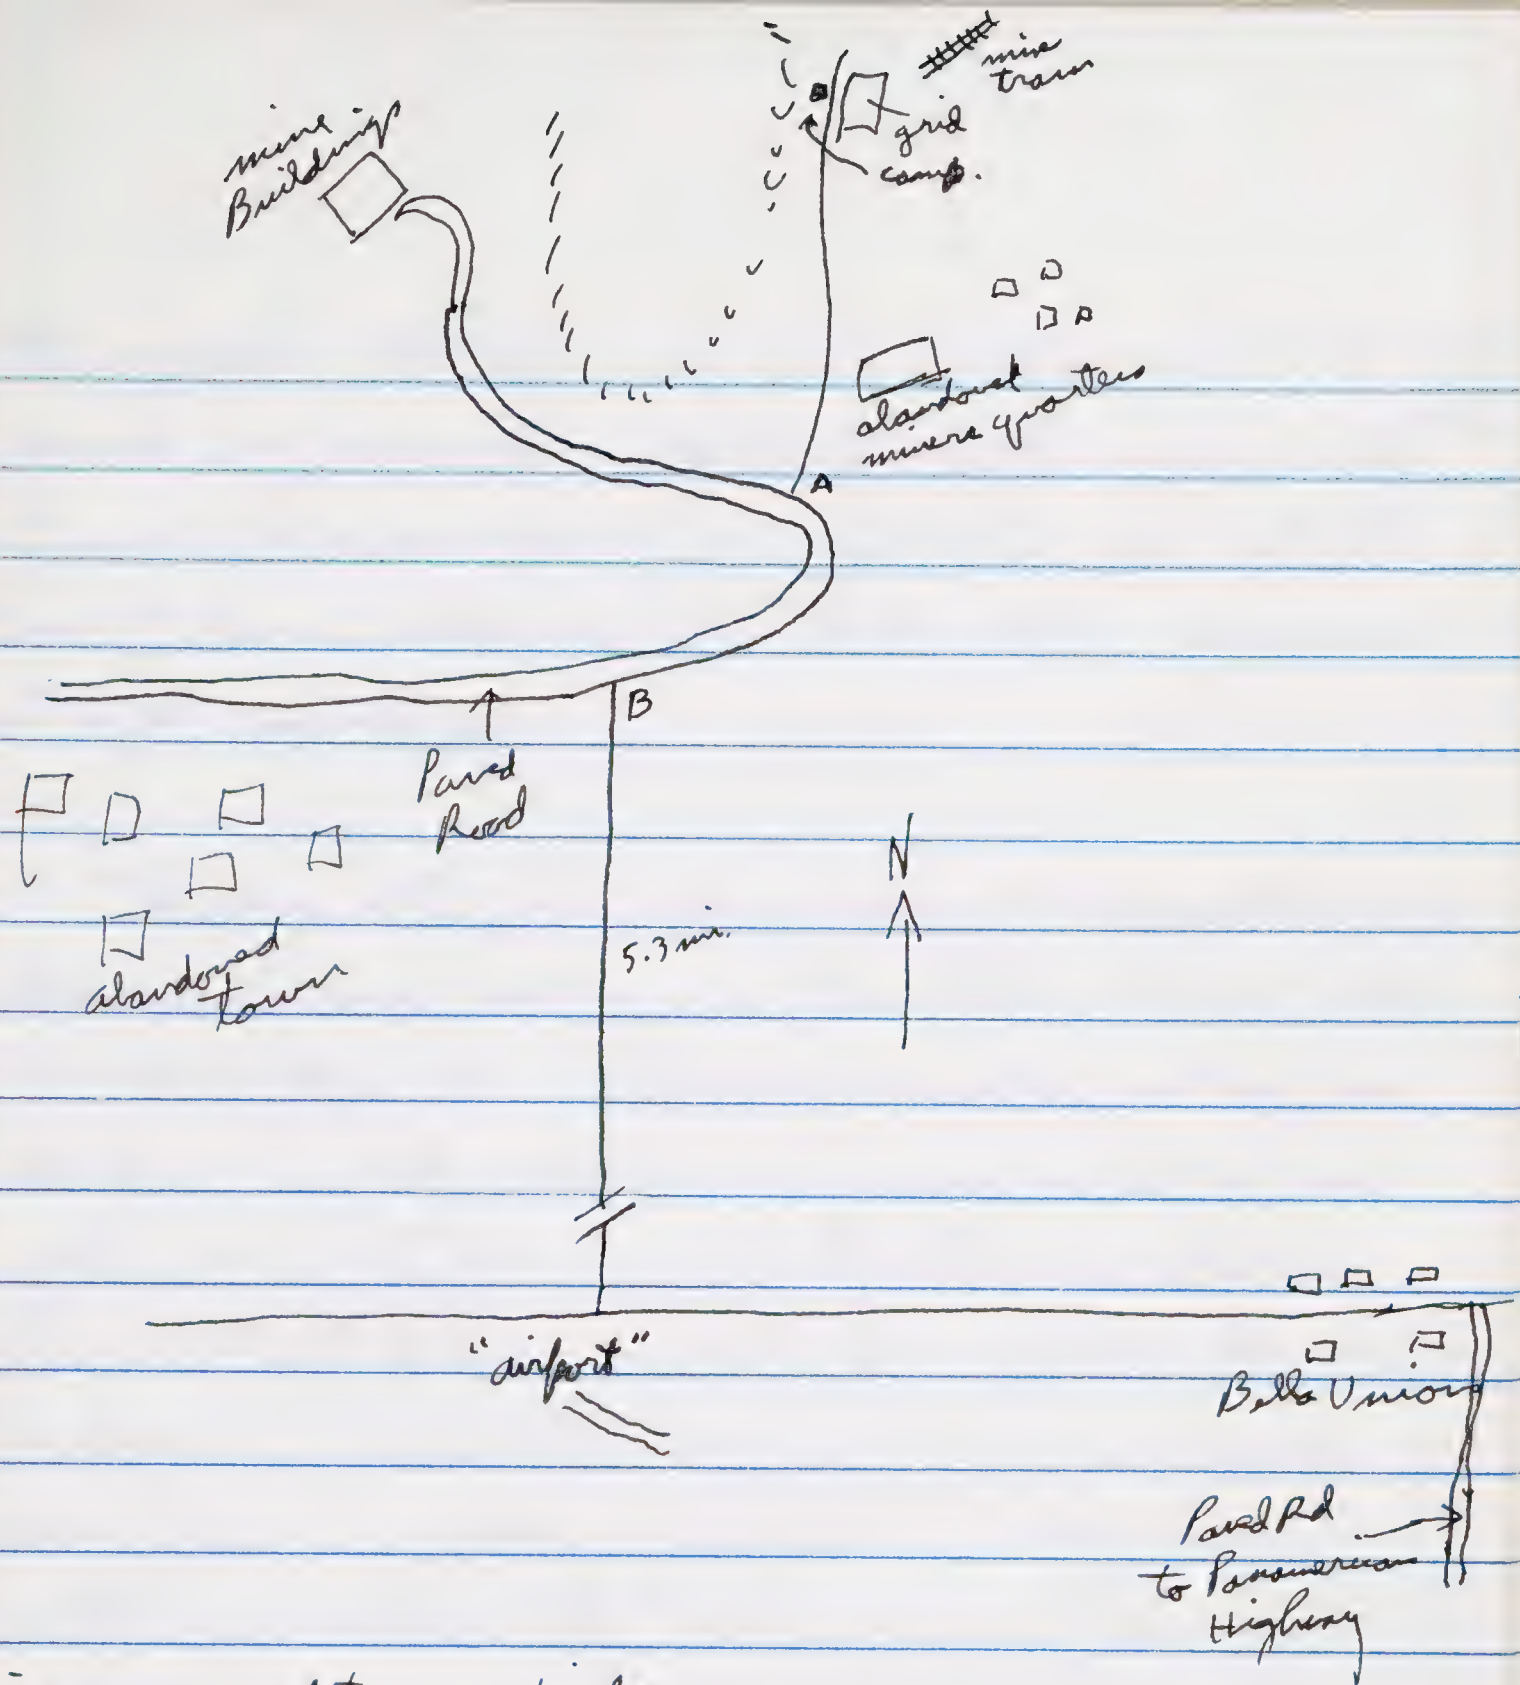 mine
tram
grid
camp.
mine
Buildings
abandoned
miners quarters
A
B
Paved
Road
N
5.3 mi.
abandoned
town
"airport"
Bella Union
Paved Rd
to Panamerican
Highway